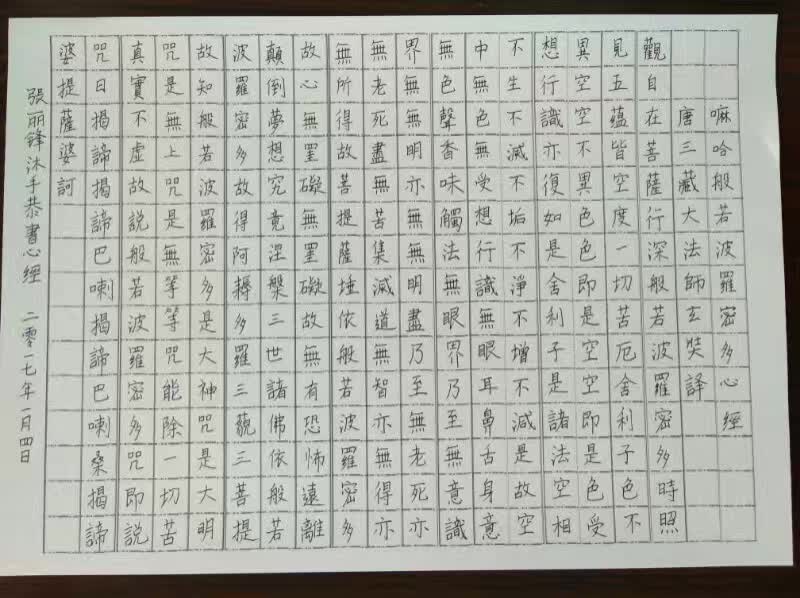 嘛哈般若波羅密多心經
唐三藏大法師玄奘譯
觀自在菩薩行深般若波羅密多時照
見五蘊皆空度一切苦厄舍利子色不
異空空不異色色即是空空即是色受
想行識亦復如是舍利子是諸法空相
不生不減不垢不淨不增不減是故空
中無色無受想行識無眼耳鼻舌身意
無色聲香味觸法無眼界乃至無意識
界無無明亦無無明盡乃至無老死亦
無老死盡無苦集減道無智亦無得亦
無所得故菩提薩埵依般若波羅密多
故心無罣礙無罣礙故無有恐怖遠離
顛倒夢想究竟涅槃三世諸佛依般若
波羅密多故得阿耨多羅三藐三菩提
故知般若波羅密多是大神咒是大明
咒是無上咒是無等等咒能除一切苦
真實不虛故說般若波羅密多咒即說
咒曰揭諦揭諦巴喇揭諦巴喇桑揭諦
婆提薩婆訶
張丽锋沐手恭書心經 二零一七年一月四日